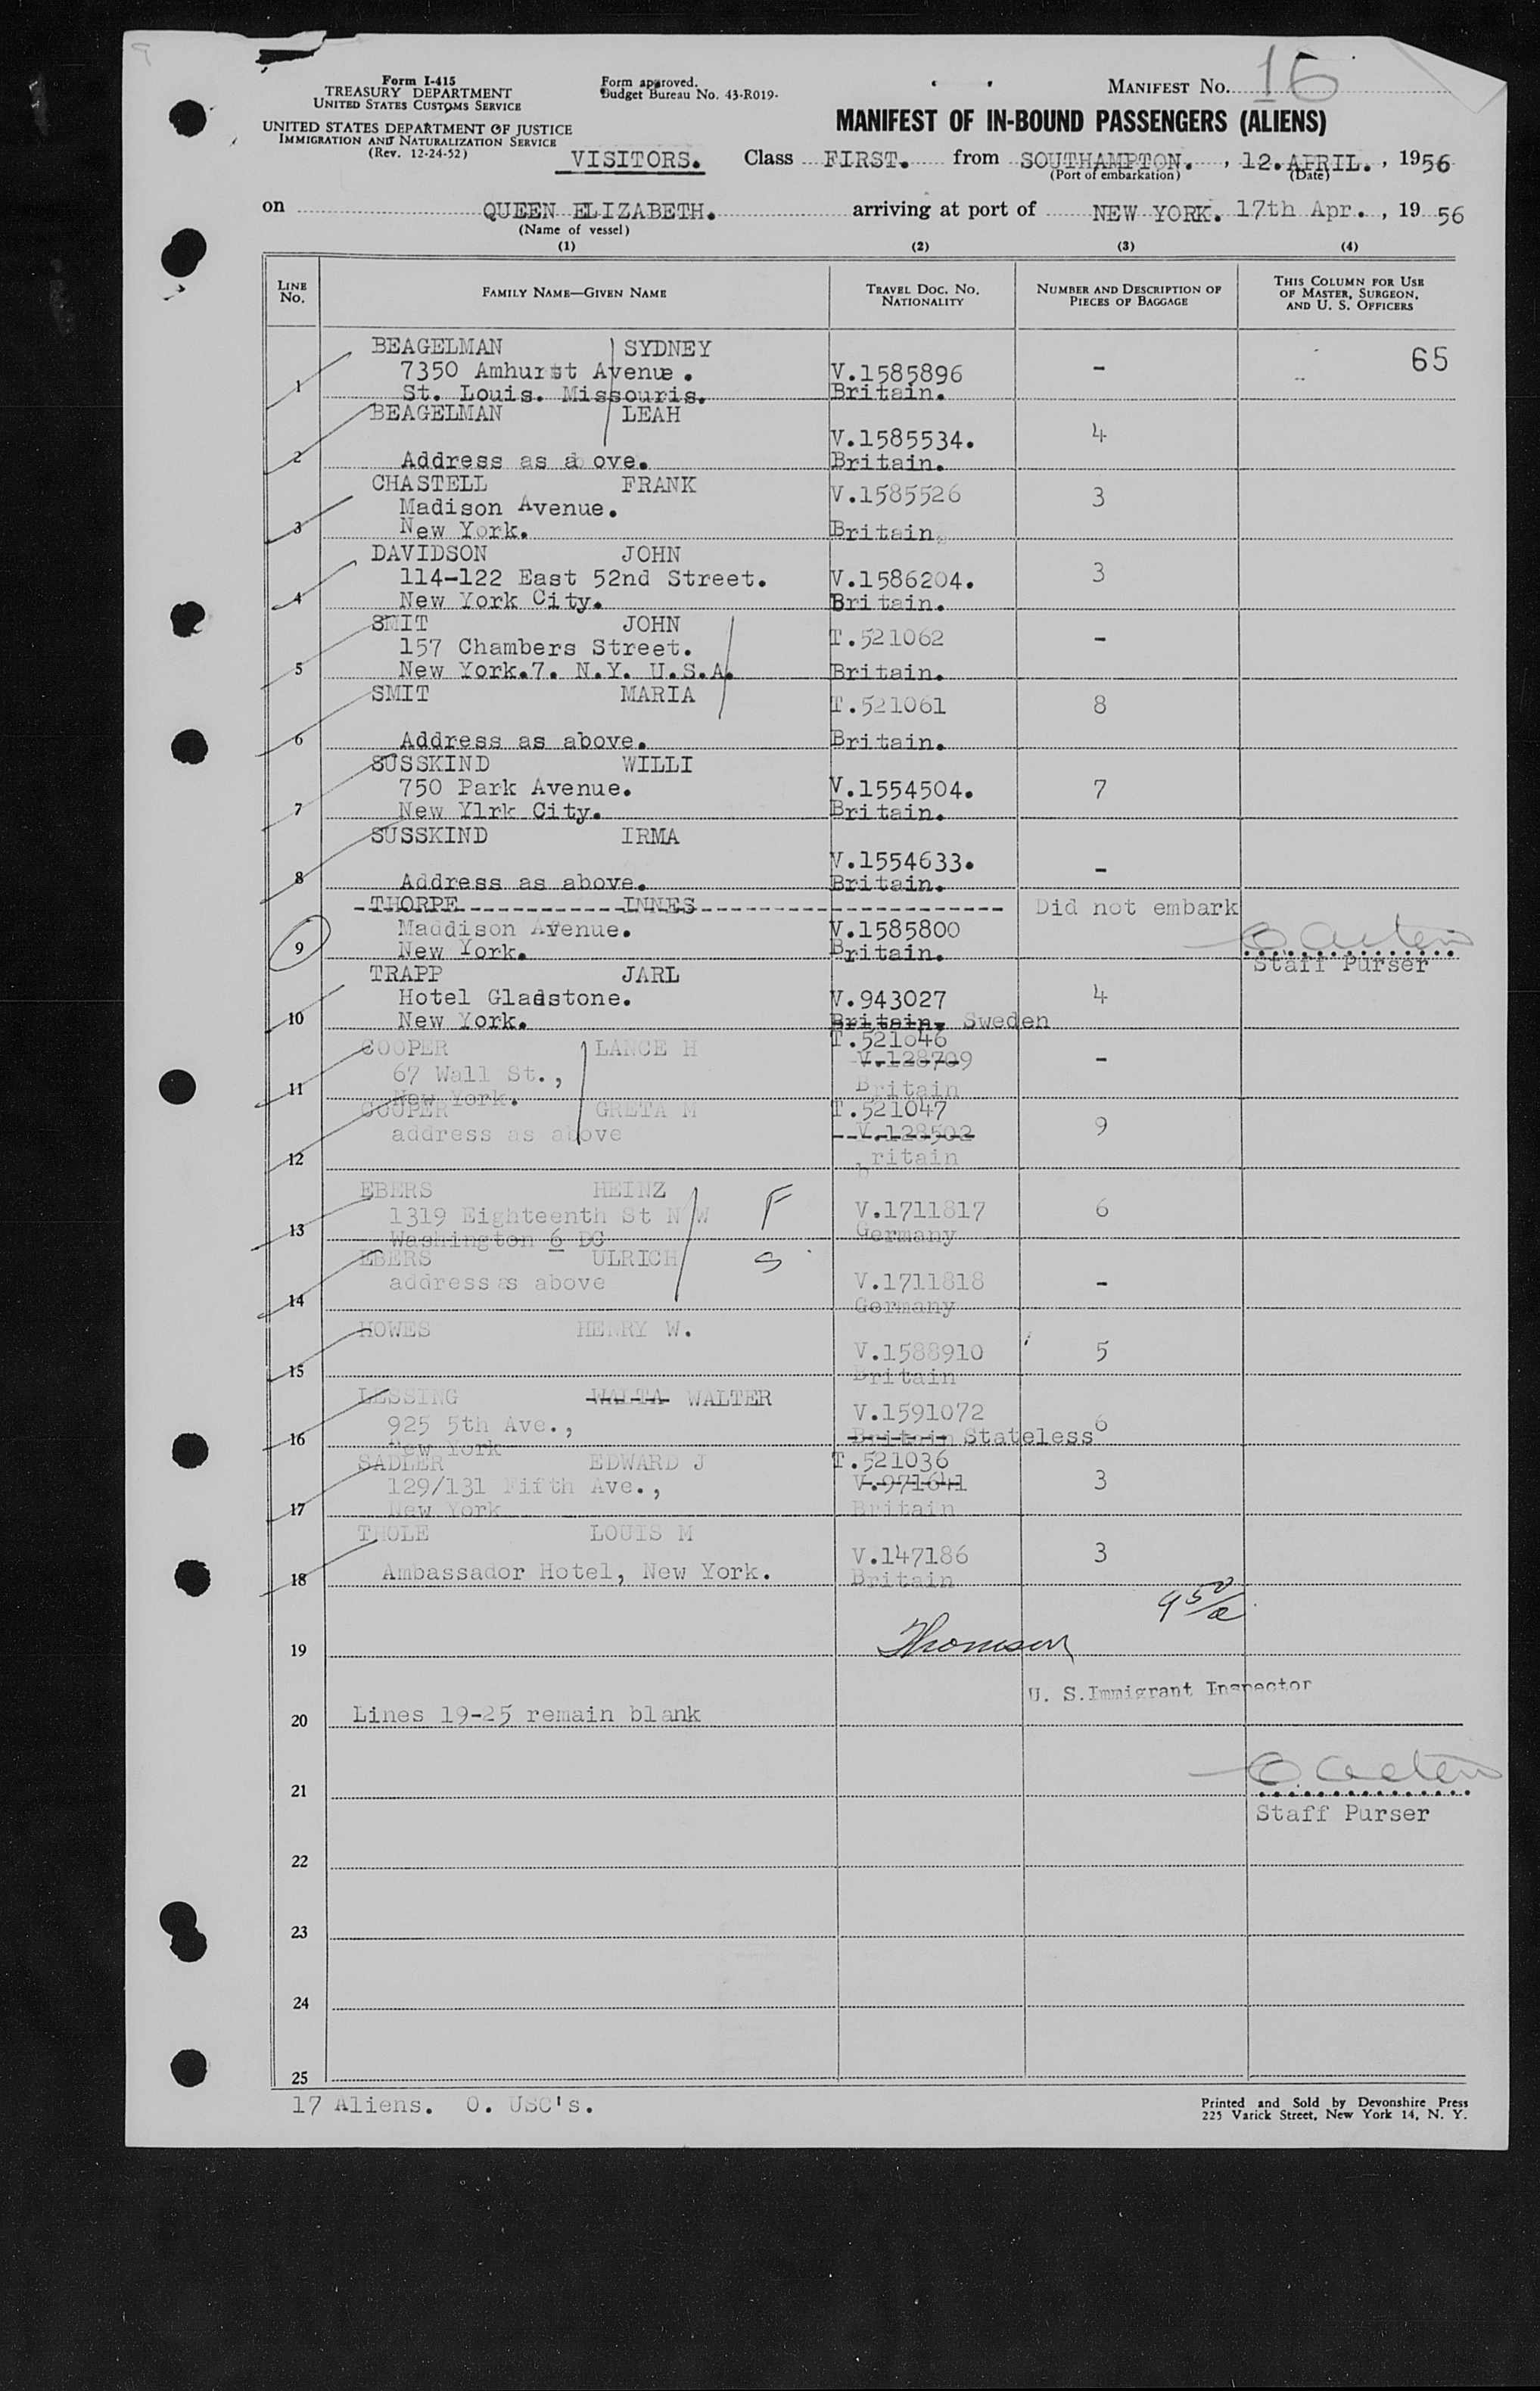 Form I-415
TREASURY DEPARTMENT
UNITED STATES CUSTOMS SERVICE
UNITED STATES DEPARTMENT OF JUSTICE
IMMIGRATION AND NATURALIZATION SERVICE
(Rev. 12-24-52)
Form approved.
Budget Bureau No. 43-R019-
MANIFEST No. 16
MANIFEST OF IN-BOUND PASSENGERS (ALIENS)
VISITORS. Class FIRST. from SOUTHAMPTON. , 12. APRIL. , 1956
(Port of embarkation) (Date)
on QUEEN ELIZABETH. arriving at port of NEW YORK. 17th Apr. , 19 56
(Name of vessel)
(1) (2) (3) (4)
LINE No. FAMILY NAME—GIVEN NAME TRAVEL DOC. NO. NATIONALITY NUMBER AND DESCRIPTION OF PIECES OF BAGGAGE THIS COLUMN FOR USE OF MASTER, SURGEON, AND U. S. OFFICERS
BEAGELMAN SYDNEY 65
7350 Amhurst Avenue. V.1585896 -
1 St. Louis. Missouris. Britain.
BEAGELMAN LEAH
V.1585534. 4
2 Address as a ove. Britain.
CHASTELL FRANK V.1585526 3
Madison Avenue.
3 New York. Britain.
DAVIDSON JOHN
114-122 East 52nd Street. V.1586204. 3
4 New York City. Britain.
SMIT JOHN T.521062 -
157 Chambers Street.
5 New York.7. N.Y. U.S.A. Britain.
SMIT MARIA T.521061 8
6 Address as above. Britain.
SUSSKIND WILLI
750 Park Avenue. V.1554504. 7
7 New Ylrk City. Britain.
SUSSKIND IRMA
V.1554633. -
8 Address as above. Britain.
THORPE INNES Did not embark
Maddison Avenue. V.1585800
9 New York. Britain.
Staff Purser
TRAPP JARL
Hotel Gladstone. V.943027 4
10 New York. Britain. Sweden
COOPER LANCE H T.521046
67 Wall St., V.128709 -
11 New York. Britain
COOPER GRETA M T.521047
address as above V.128502 9
12 britain
EBERS HEINZ F
1319 Eighteenth St N W V.1711817 6
13 Washington 6 DC Germany
EBERS ULRICH S
address as above V.1711818 -
14 Germany
HOWES HENRY W.
V.1588910 5
15 Britain
LESSING WALTA WALTER
925 5th Ave., V.1591072 6
16 New York Britain Stateless
SADLER EDWARD J T.521036
129/131 Fifth Ave., V.971641 3
17 New York Britain
THOLE LOUIS M
Ambassador Hotel, New York. V.147186 3
18 Britain
19 Thomson
U. S. Immigrant Inspector
20 Lines 19-25 remain blank
21
Staff Purser
22
23
24
25
17 Aliens. O. USC's.
Printed and Sold by Devonshire Press
225 Varick Street, New York 14, N. Y.